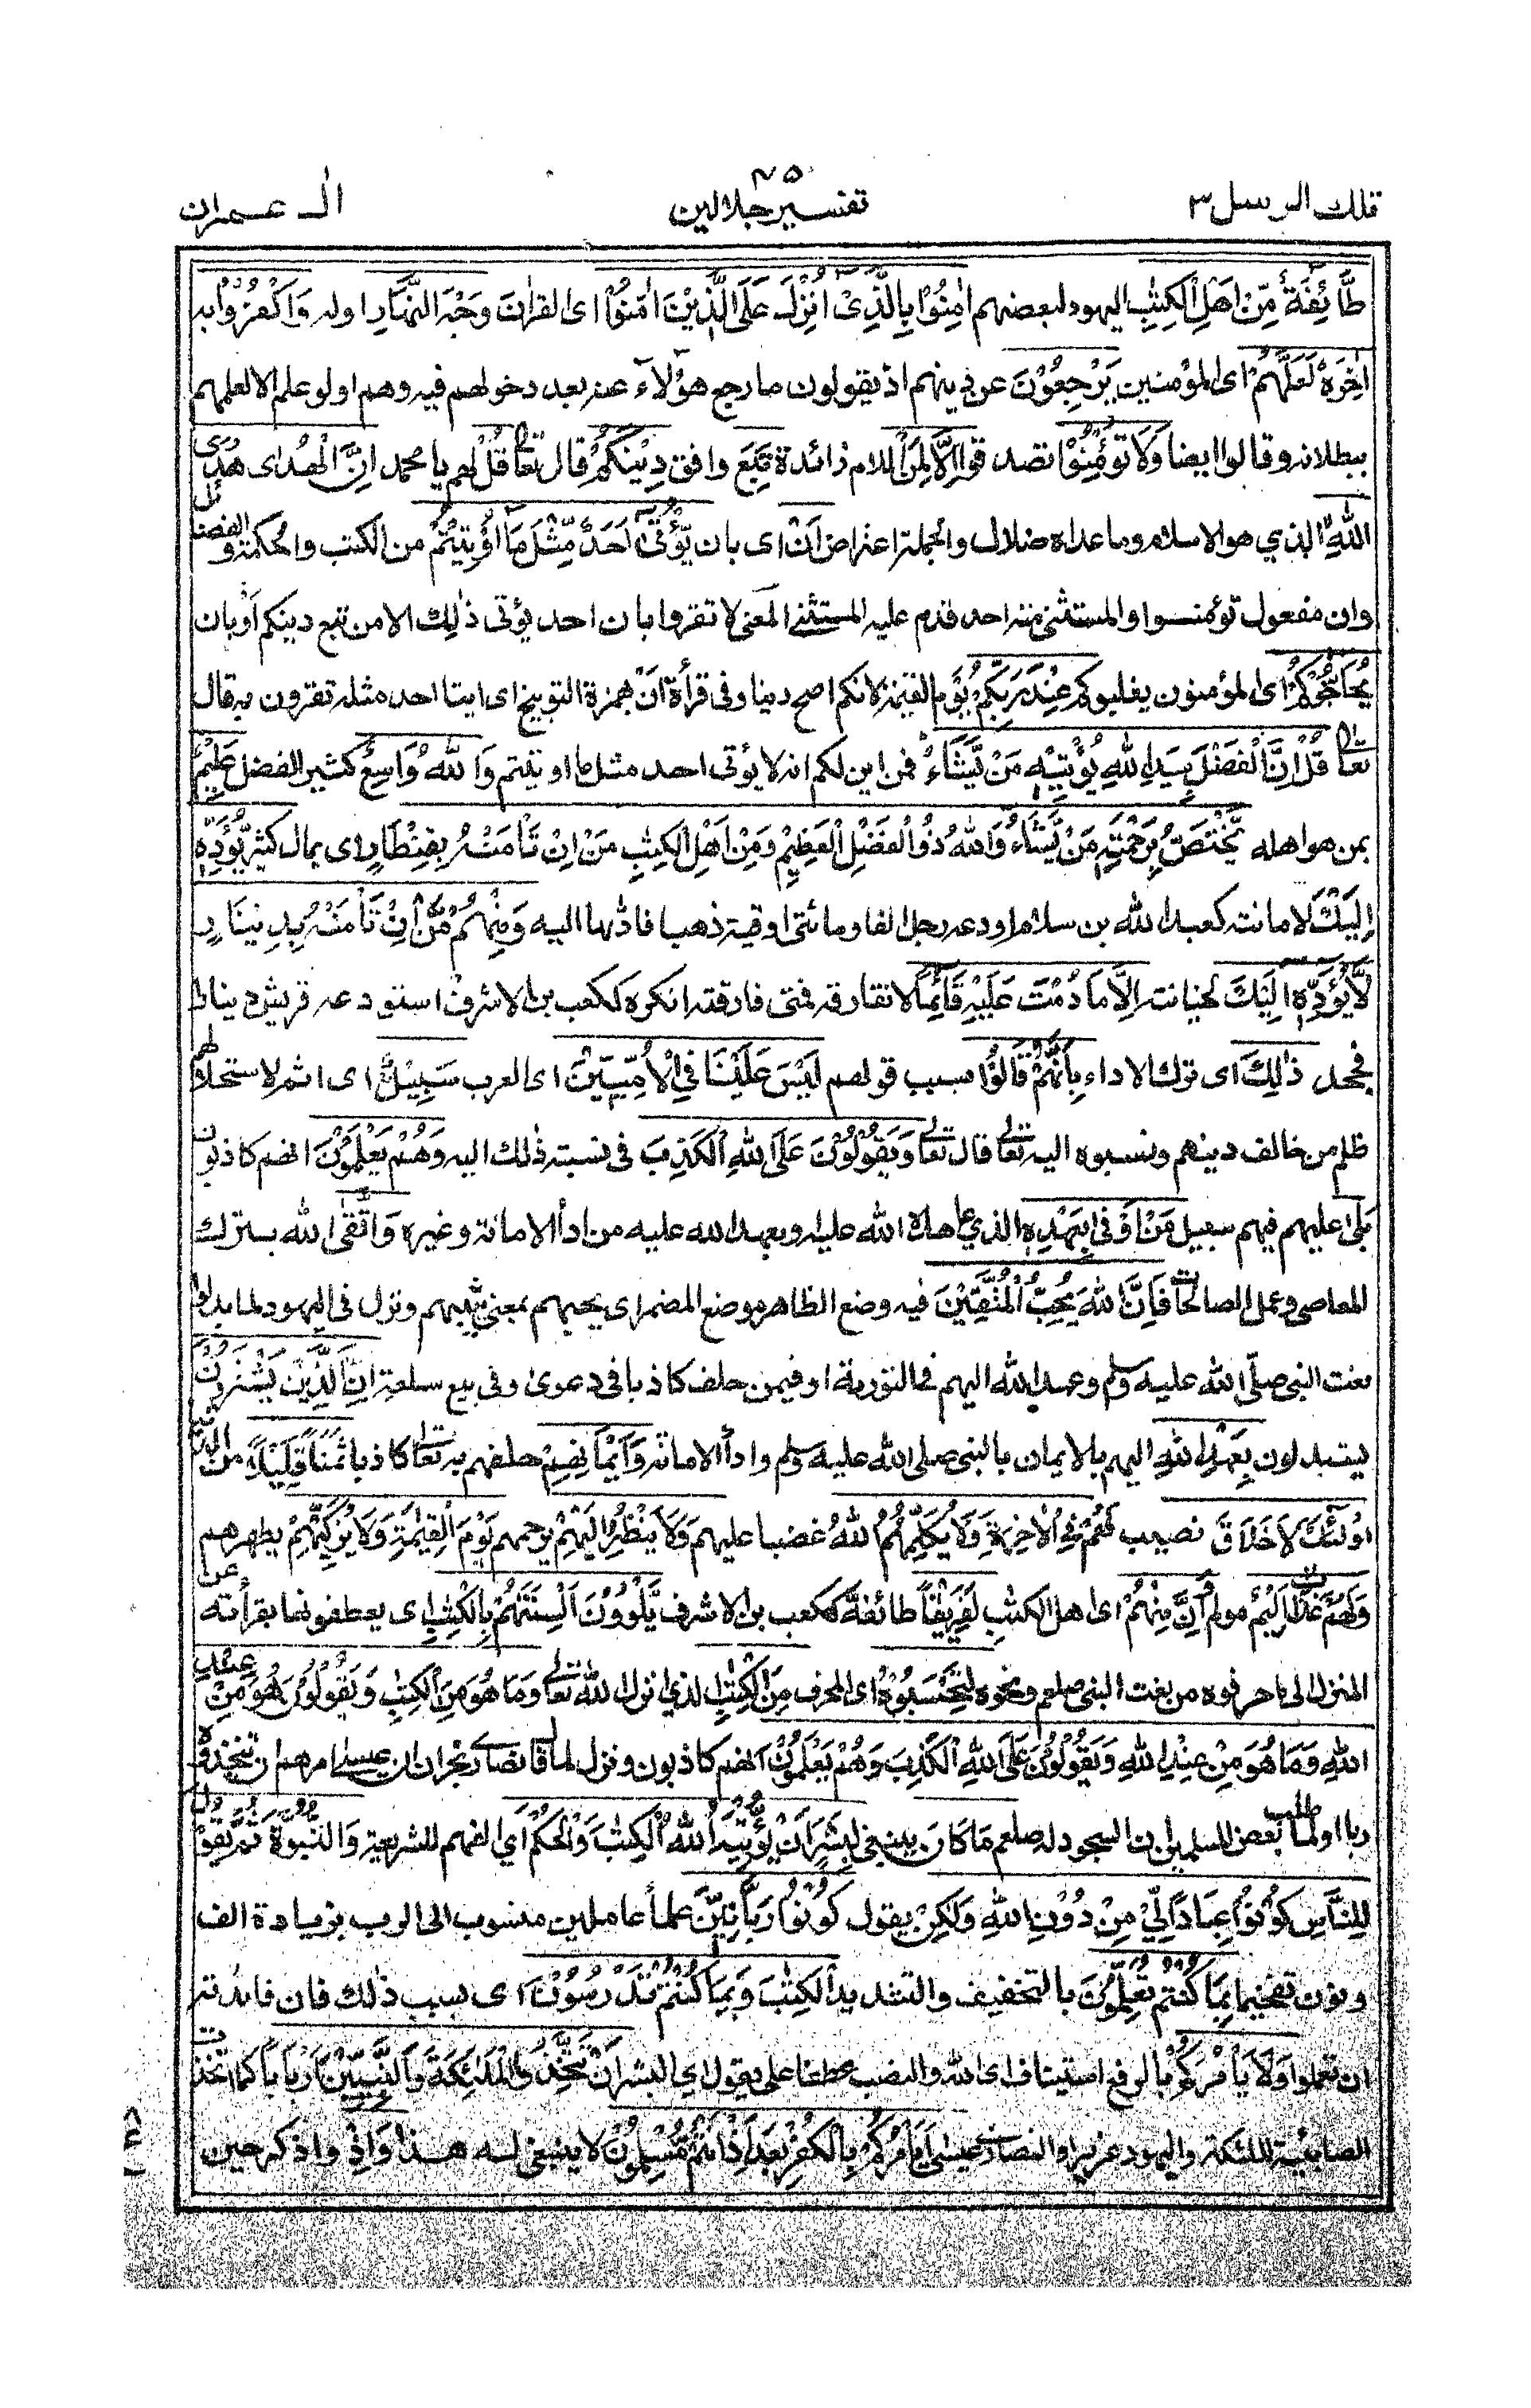 تلك الرسل ٣
٧٥
تفسير جلالين
اٰل عمران
طَّآئِفَةٌ مِّنْ اَهْلِ الْكِتٰبِ اليهود لبعضهم اٰمِنُوْا بِالَّذِىْٓ اُنْزِلَ عَلَى الَّذِيْنَ اٰمَنُوْا اى القراٰن وَجْهَ النَّهَارِ اوله وَاكْفُرُوْٓا به
اٰخِرَهٗ لَعَلَّهُمْ اى المؤمنين يَرْجِعُوْنَ عن دينهم اذ يقولون ما رجع هؤلآء عنه بعد دخولهم فيه وهم اولو علم الا لعلمهم
ببطلانه وقالوا ايضا وَلَا تُؤْمِنُوْٓا تصدقوا اِلَّا لِمَنْ اللام زائدة تَبِعَ وافق دِيْنَكُمْ قال تعالى قُلْ لهم يا محمد اِنَّ الْهُدٰى هُدَى
اللّٰهِ الذي هو الاسلام وما عداه ضلال والجملة اعتراض اَنْ اى بان يُّؤْتٰٓى اَحَدٌ مِّثْلَ مَآ اُوْتِيْتُمْ من الكتٰب والحكمة والفضائل
وان مفعول تؤمنوا والمستثنى منه احد قدم عليه المستثنى المعنى لا تقروا بان احد يؤتى ذٰلك الا من تبع دينكم اَوْ بان
يُحَآجُّوْكُمْ اى المؤمنون يغلبوكم عِنْدَ رَبِّكُمْ يوم القيٰمة لانكم اصح دينا وفى قرأة اَاَنْ بهمزة التوبيخ اى ايتا احد مثله تقرون به قال
تعالى قُلْ اِنَّ الْفَضْلَ بِيَدِ اللّٰهِ يُؤْتِيْهِ مَنْ يَّشَآءُ فمن اين لكم انه لا يؤتى احد مثل ما اوتيتم وَاللّٰهُ وَاسِعٌ كثير الفضل عَلِيْمٌ
بمن هو اهله يَّخْتَصُّ بِرَحْمَتِهٖ مَنْ يَّشَآءُ وَاللّٰهُ ذُو الْفَضْلِ الْعَظِيْمِ وَمِنْ اَهْلِ الْكِتٰبِ مَنْ اِنْ تَاْمَنْهُ بِقِنْطَارٍ اى بمال كثير يُّؤَدِّهٖٓ
اِلَيْكَ لامانته كعبد الله بن سلام اودعه رجل الفا ومائتى اوقية ذهبا فاداها اليه وَمِنْهُمْ مَّنْ اِنْ تَاْمَنْهُ بِدِيْنَارٍ
لَّا يُؤَدِّهٖٓ اِلَيْكَ لخيانته اِلَّا مَا دُمْتَ عَلَيْهِ قَآئِمًا لا تفارقه فمتى فارقته انكره ككعب بن الاشرف استودعه قريشى دينارا
فجحد ذٰلِكَ اى ترك الاداء بِاَنَّهُمْ قَالُوْا بسبب قولهم لَيْسَ عَلَيْنَا فِى الْاُمِّيّٖنَ اى العرب سَبِيْلٌ اى اثم لاستحلالهم
ظلم من خالف دينهم ونسبوه اليه تعالى قال تعالى وَيَقُوْلُوْنَ عَلَى اللّٰهِ الْكَذِبَ فى نسبة ذٰلك اليه وَهُمْ يَعْلَمُوْنَ انهم كاذبون
بَلٰى عليهم فيهم سبيل مَنْ اَوْفٰى بِعَهْدِهٖ الذي عاهده الله عليه وبعهد الله عليه من ادأ الامانة وغيره وَاتَّقٰى الله بترك
المعاصى وعمل الصالحات فَاِنَّ اللّٰهَ يُحِبُّ الْمُتَّقِيْنَ فيه وضع الظاهر موضع المضمر اى يحبهم بمعنى يثيبهم ونزل فى اليهود لما بدلوا
نعت النبى صلى الله عليه وسلم وعهد الله اليهم فى التورىة او فيمن حلف كاذبا فى دعوى وفى بيع سلعة اِنَّ الَّذِيْنَ يَشْتَرُوْنَ
يستبدلون بِعَهْدِ اللّٰهِ اليهم بالايمان بالنبى صلى الله عليه وسلم وادأ الامانة وَاَيْمَانِهِمْ حلفهم به تعالى كاذبا ثَمَنًا قَلِيْلًا من الدنيا
اُولٰٓئِكَ لَا خَلَاقَ نصيب لَهُمْ فِى الْاٰخِرَةِ وَلَا يُكَلِّمُهُمُ اللّٰهُ غضبا عليهم وَلَا يَنْظُرُ اِلَيْهِمْ يرحمهم يَوْمَ الْقِيٰمَةِ وَلَا يُزَكِّيْهِمْ يطهرهم
وَلَهُمْ عَذَابٌ اَلِيْمٌ مولم وَاِنَّ مِنْهُمْ اى اهل الكتٰب لَفَرِيْقًا طائفة ككعب بن الاشرف يَّلْوٗنَ اَلْسِنَتَهُمْ بِالْكِتٰبِ اى يعطفونها بقرأته عن
المنزل الى ما حرفوه من نعت النبى صلعم ونحوه لِتَحْسَبُوْهُ اى المحرف مِنَ الْكِتٰبِ الذي انزل الله تعالى وَمَا هُوَ مِنَ الْكِتٰبِ وَيَقُوْلُوْنَ هُوَ مِنْ عِنْدِ
اللّٰهِ وَمَا هُوَ مِنْ عِنْدِ اللّٰهِ وَيَقُوْلُوْنَ عَلَى اللّٰهِ الْكَذِبَ وَهُمْ يَعْلَمُوْنَ انهم كاذبون ونزل لما قال نصارى نجران ان عيسى امرهم ان يتخذوه
ربا او لما طلب بعض المسلمين السجود له صلعم مَا كَانَ ينبغى لِبَشَرٍ اَنْ يُّؤْتِيَهُ اللّٰهُ الْكِتٰبَ وَالْحُكْمَ اي الفهم للشريعة وَالنُّبُوَّةَ ثُمَّ يَقُوْلَ
لِلنَّاسِ كُوْنُوْا عِبَادًا لِّيْ مِنْ دُوْنِ اللّٰهِ وَلٰكِنْ يقول كُوْنُوْا رَبَّانِيّٖنَ علمأ عاملين منسوب الى الرب بزيادة الف
ونون تفخيما بِمَا كُنْتُمْ تُعَلِّمُوْنَ بالتخفيف والتشديد الْكِتٰبَ وَبِمَا كُنْتُمْ تَدْرُسُوْنَ اى بسبب ذٰلك فان فائدته
ان تعملوا وَلَا يَاْمُرُكُمْ بالرفع استينافا اى الله والنصب عطفا على يقول اي البشر اَنْ تَتَّخِذُوا الْمَلٰٓئِكَةَ وَالنَّبِيّٖنَ اَرْبَابًا كما اتخذت
الصابئية الملٰئكة واليهود عزيرا والنصارى عيسى اَيَاْمُرُكُمْ بِالْكُفْرِ بَعْدَ اِذْ اَنْتُمْ مُّسْلِمُوْنَ لا ينبغى له هذا وَاِذْ واذكر حين